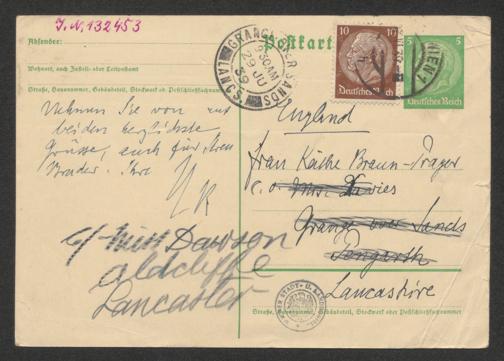 J. N. 132453
Absender:
Wohnort, auch Zustell- oder Leitpostamt
Straße, Hausnummer, Gebäudeteil, Stockwerk od. Postschließfachnummer
Nehmen Sie von uns
beiden herzlichste
Grüsse, auch für Ihren
Bruder. Ihre
c/- Miss Dawson
Aldcliffe
Lancaster
GRANGE OVER SANDS
9 30 AM
29 JU
39
LANCS.
Postkarte
10
Deutsches Reich
WIEN
5
Deutsches Reich
England
Frau Käthe Braun-Prager
c. o. Mrs. Davies
Grange over Sands
Lancashire
Straße, Hausnummer, Gebäudeteil, Stockwerk oder Postschließfachnummer